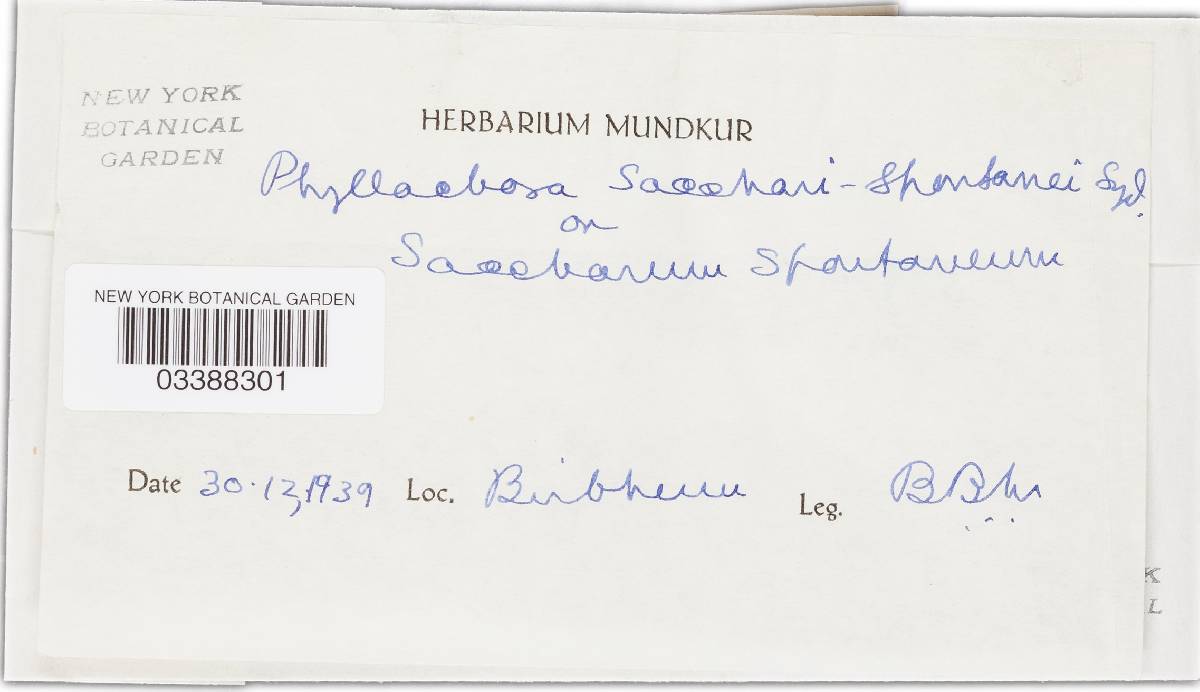 NEW YORK
BOTANICAL
GARDEN
HERBARIUM MUNDKUR
Phyllachora Sacchari-spontanei Syd.
on
Saccharum spontaneum
NEW YORK BOTANICAL GARDEN
03388301
Date 30.12,1939 Loc. Birbhum Leg.
K
L